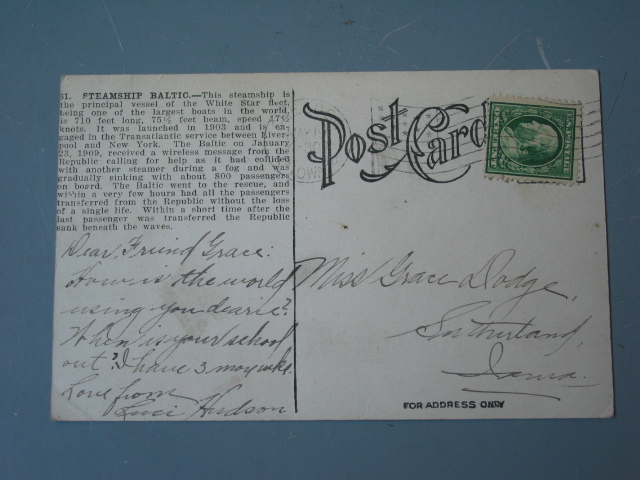 61. STEAMSHIP BALTIC.—This steamship is
the principal vessel of the White Star fleet,
being one of the largest boats in the world,
is 710 feet long, 75½ feet beam, speed 17½
knots. It was launched in 1903 and is en-
gaged in the Transatlantic service between Liver-
pool and New York. The Baltic on January
23, 1909, received a wireless message from the
Republic calling for help as it had collided
with another steamer during a fog and was
gradually sinking with about 800 passengers
on board. The Baltic went to the rescue, and
within a very few hours had all the passengers
transferred from the Republic without the loss
of a single life. Within a short time after the
last passenger was transferred the Republic
sank beneath the waves.
Dear Friend Grace:
How is the world
using you dearie?
When is your school
out? I have 3 more wks.
Love from
Hudson
Post Card
Miss Grace Dodge,
Sutherland,
Iowa.
FOR ADDRESS ONLY